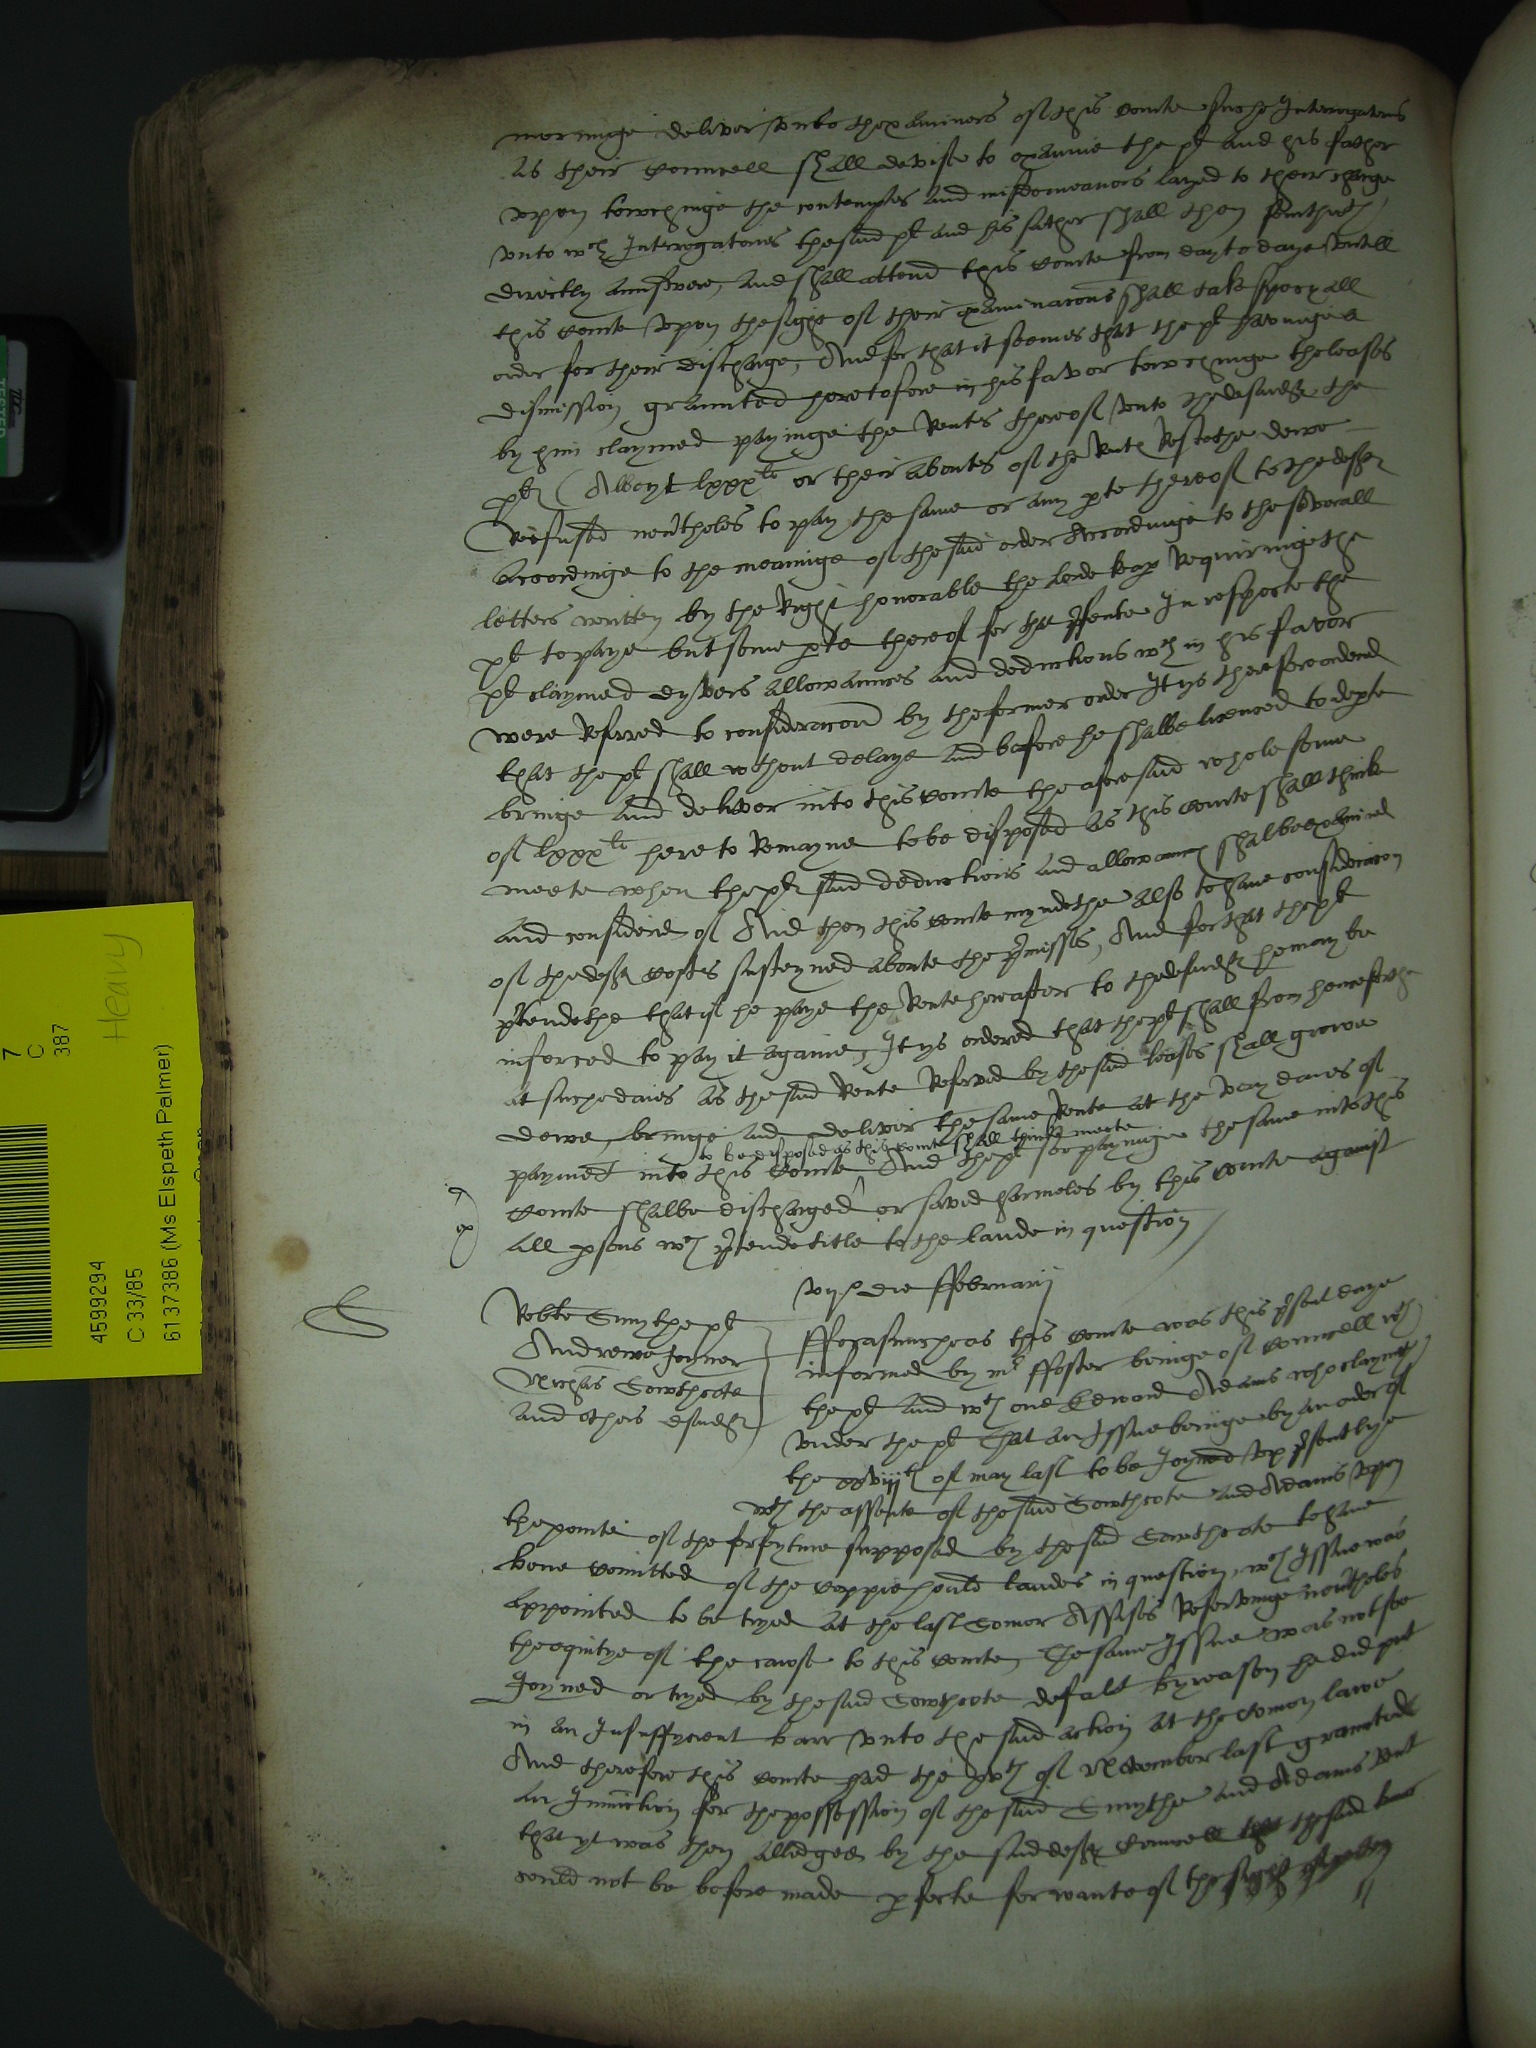 morninge deliver unto thexaminers of this Courte suche Interrogatories
as their Councell shall devise to examine the pl and his father
upon towchinge the contemptes and misdemeanors layed to their charge
unto wch Interrogatories the said pl and his father shall then forthwth
directly aunswere, and shall attend this Courte from day to daye untill
this Courte upon the sight of their examinacons shall take specyall
order for their discharge, And for that it seemes that the pl havinge a
dismission graunted heretofore in his favor towchinge the leases
by him claymed payinge the Rentes thereof unto the defendtes the
pl (Albeyt lxxxli or their aboutes of the Rent Resteth dewe
Refused nevtheles to pay the same or any pte thereof to the deftes
accordinge to the meaninge of the said order Accordinge to the severall
letters written by the Right honorable the lorde keap Requiringe the
pl to paye but some pte thereof for the psente In respecte the
pl claymed dyvers allowaunces and deductions wch in his favor
were Referred to consideracon by the former order It ys therefore ordered
that the pl shall wthout delaye and before he shalbe licenced to depte
bringe and deliver into this Courte the aforesaid whole some
of lxxxli here to Remayne to be disposed as this Courte shall thinke
meete when the pl said deductions and allowaunces shalbe examined
and considered of And then this Courte myndethe also to have consideracon
of the deftes costes susteyned aboute the pmisses, And for that the pl
ptendethe that if he paye the Rente hereafter to the defendtes he may be
inforced to pay it againe, It ys ordered that the pl shall from henceforthe
at suche daies as the said Rente Reserved by the said leases shall growe
dewe, bringe and deliver the same Rente at the very daies of
to be disposed as this Courte shall thinke meete
payment into this Courte And the pl for payinge the same into this
Courte shalbe discharged or saved harmeles by this Courte against
all psons wch ptende title to the lande in question
vijo die ffebruarij
Robte Smythe pl
Andrewe Joyner
Nichas Sowthcote
and others defendtes
fforasmuche as this Courte was this psent daye
informed by mr ffoster beinge of Councell wth
the pl and wth one Edward Adams who claymeth
under the pl That an Issue beinge by an order of
the xxviijth of may last to be Joyned up psentlye
wth the assente of the said Sowthcote and Adams upon
the pointe of the forfeyture supposed by the said Sowthcote to have
bene Comitted of the Coppiehould landes in question, wch Issue was
appointed to be tryed at the last Somer Assises Reservinge nevtheles
the equitye of the cawse to this Courte, The same Issue was not soe
Joyned or tryed by the said Sowthcote defalt by reason he did put
in an Insuffycient barr unto the said action at the Comon lawe
And therefore this Courte had the xvth of November last graunted
an Iniunction for the possession of the said Smythe and Adams But
that yt was then alledged by the said deftes Councell that the said barr
could not be before made perfecte for wante of the sight of
7
C
387
Heavy
4599294
C 33/85
6137386 (Ms Elspeth Palmer)
TESTED